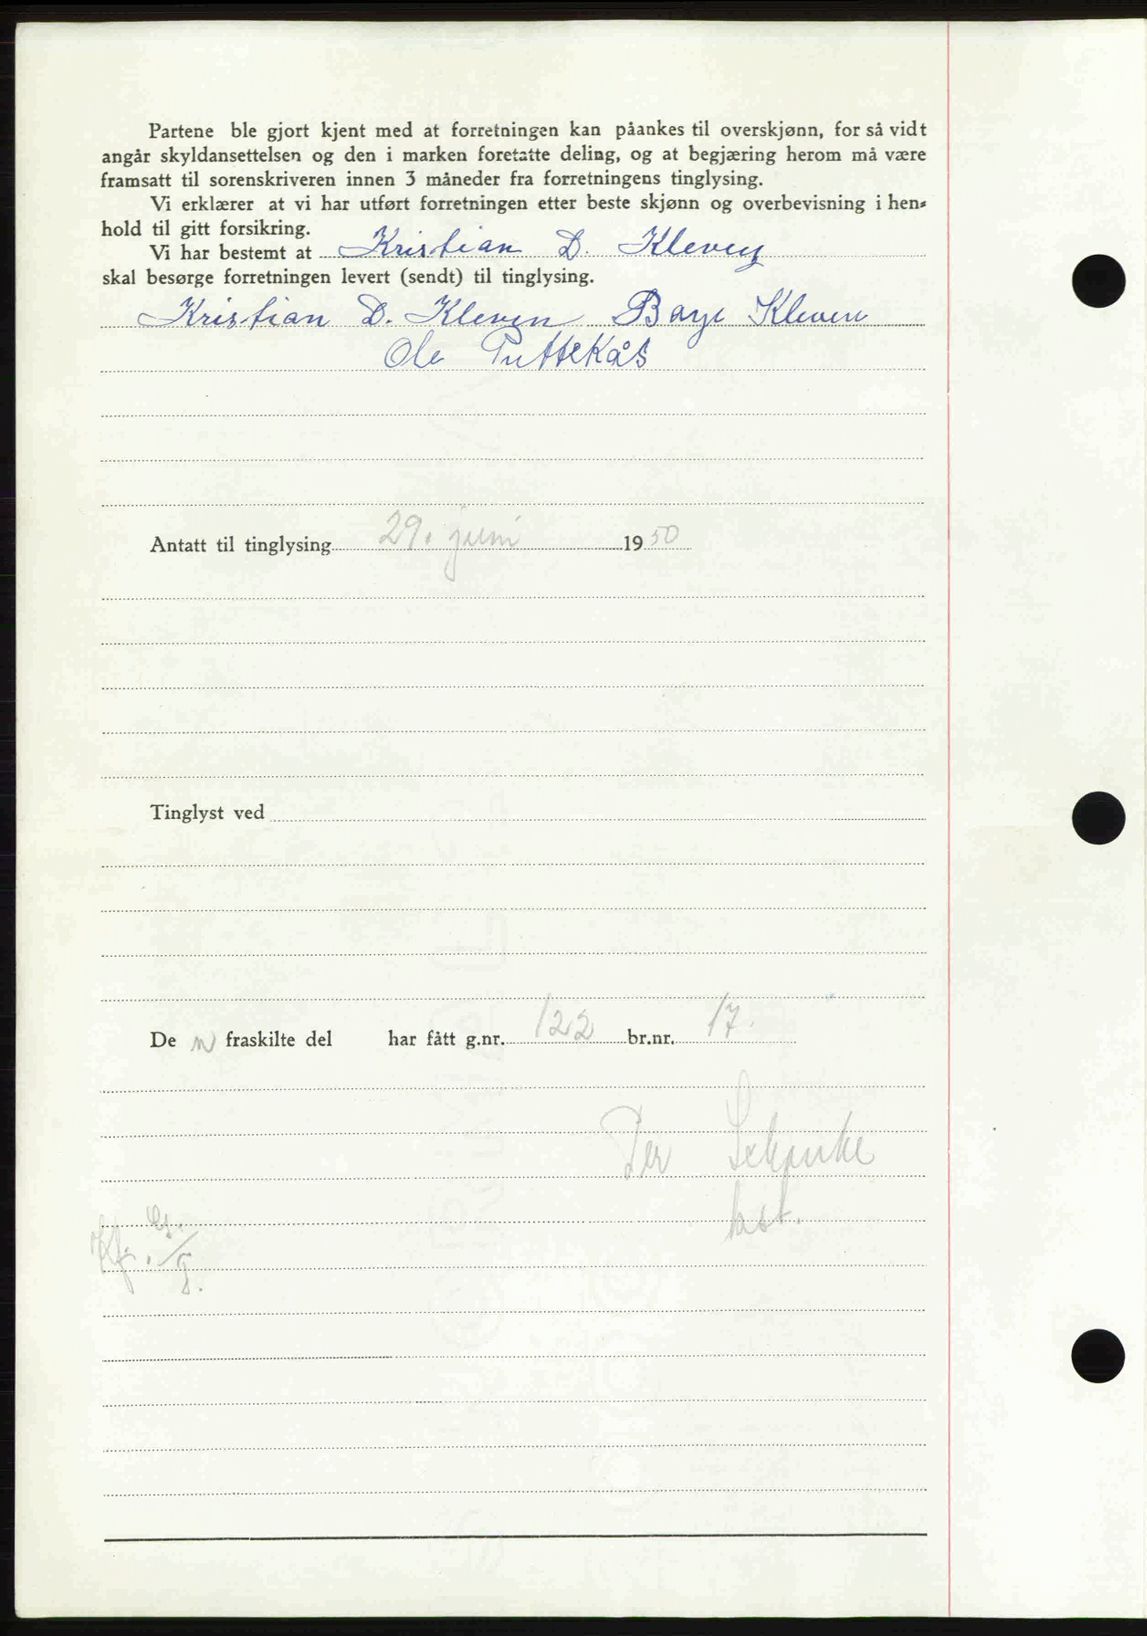 Partene ble gjort kjent med at forretningen kan påankes til overskjønn, for så vidt
angår skyldansettelsen og den i marken foretatte deling, og at begjæring herom må være
framsatt til sorenskriveren innen 3 måneder fra forretningens tinglysing.
Vi erklærer at vi har utført forretningen etter beste skjønn og overbevisning i hen-
hold til gitt forsikring.
Vi har bestemt at Kristian D. Kleven
skal besørge forretningen levert (sendt) til tinglysing.
Kristian D. Kleven Barye Kleven
Ole Puttekås
Antatt til tinglysing 29. juni 1950
Tinglyst ved
De n fraskilte del har fått g.nr. 122 br.nr. 17.
Per
kst.